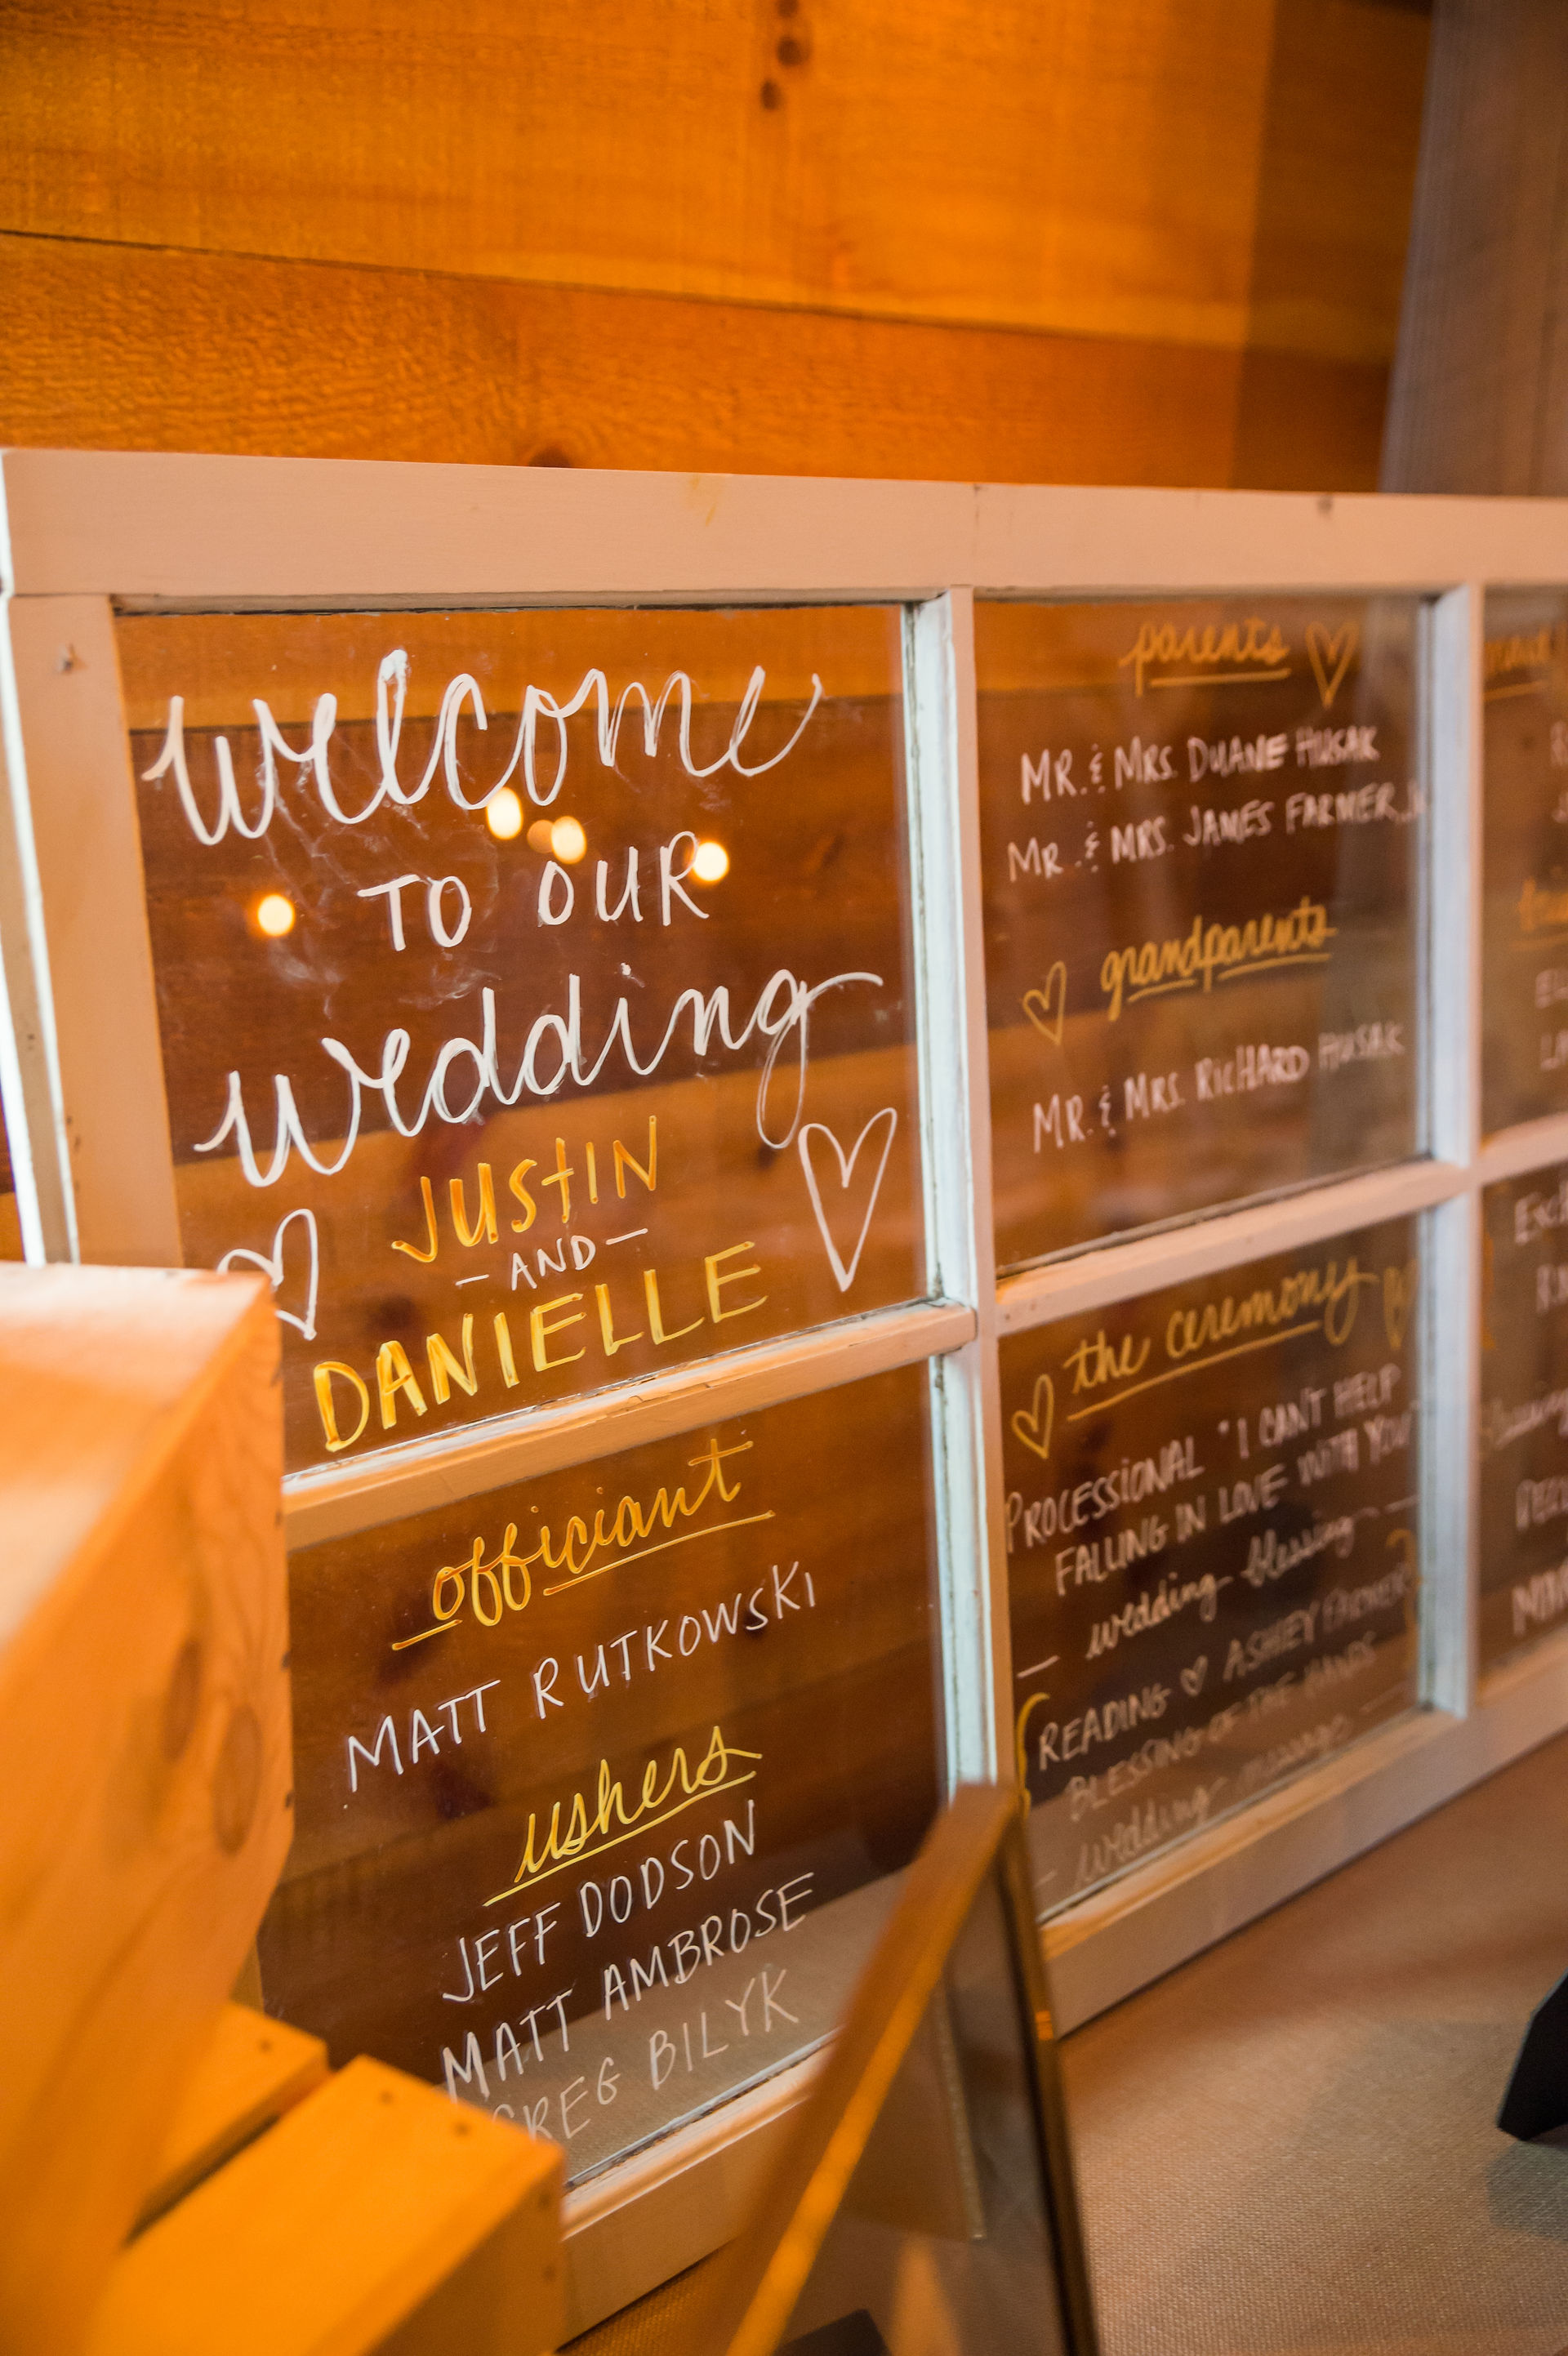 welcome
TO OUR
wedding
JUSTIN
- AND -
DANIELLE
officiant
MATT RUTKOWSKI
ushers
JEFF DODSON
MATT AMBROSE
GREG BILYK
parents
MR. & MRS. DUANE HUSAK
MR. & MRS. JAMES FARMER, J
grandparents
MR. & MRS. RICHARD HUSAK
the ceremony
PROCESSIONAL "I CAN'T HELP
FALLING IN LOVE WITH YOU"
- wedding blessing -
READING ♡ ASHLEY FARMER
BLESSING OF THE HANDS
- wedding message -